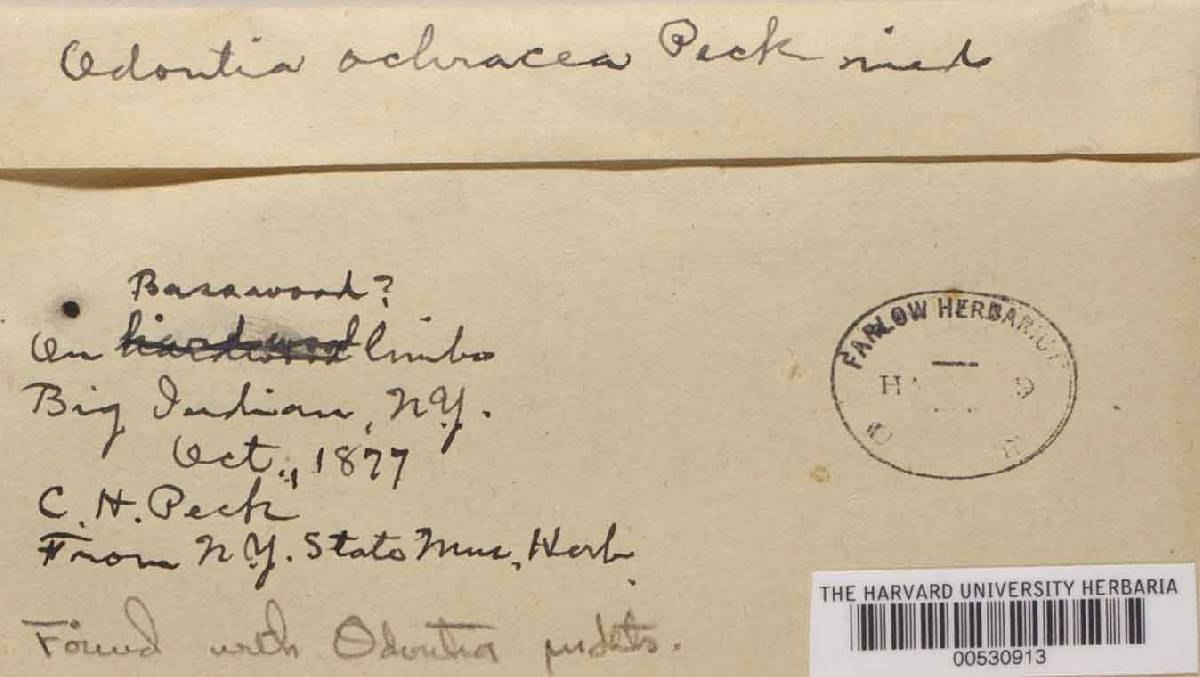 Odontia ochracea Peck
Basswood?
On hardwood limbs
Big Indian, N.Y.
Oct., 1877
C. H. Peck
From N.Y. State Mus. Herb.
Found with Odontia
FARLOW HERBARIUM
THE HARVARD UNIVERSITY HERBARIA
00530913